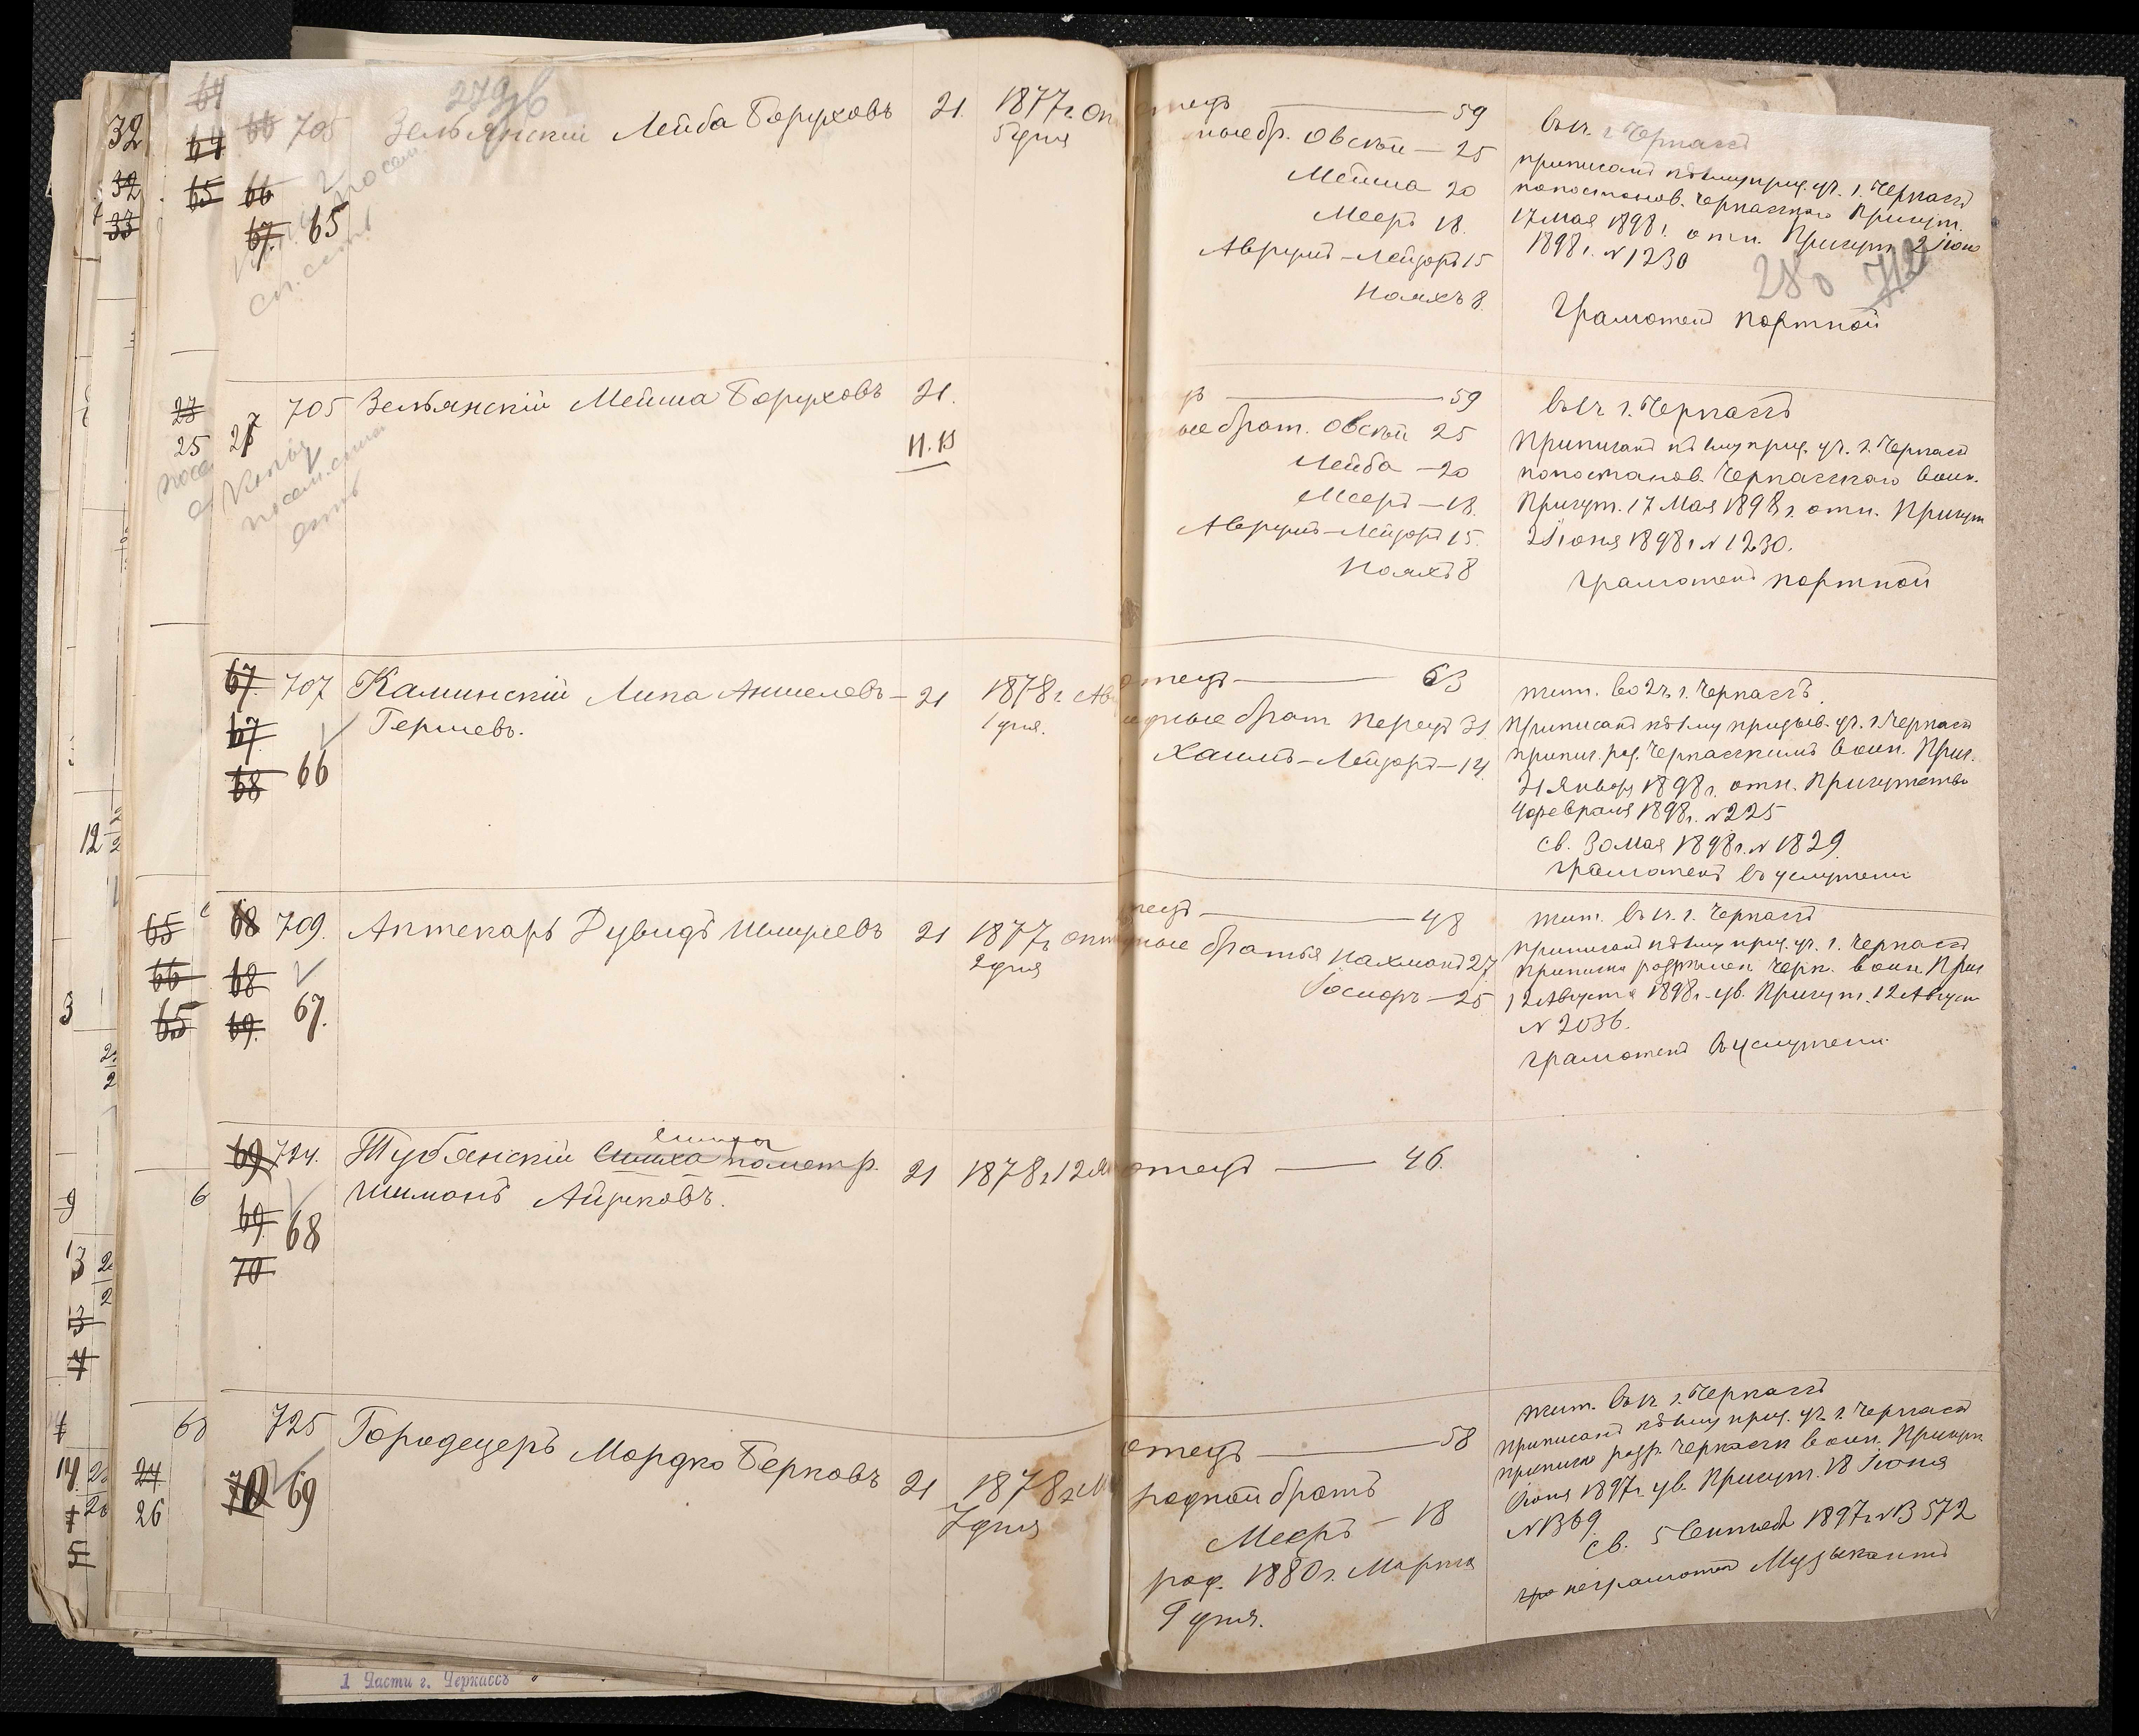 279 об
64
64
65
66
66
67
65
705 Зельянскій Лейба Боруховъ 21. 1877 г. Ок
5 дня
отецъ — 59
ные бр. Овсѣй — 25
Мейша 20
Мееръ 18.
Аврумъ-Лейзеръ 15
Ноахъ 8.
въ 1 ч. г. Черкассъ
приписанъ къ 1му приз. уч. г. Черкассъ
по постанов. Черкасскаго Присут.
17 Мая 1898 г. отн. Присут. 2 Іюн
1898 г. № 1230
280 712
Грамотенъ портной
32
32
33
23
25
27
705 Зельянскій Мейша Боруховъ 21.
Н. В
Копія
посем. списк
есть
цъ — 59
ые брат. Овсѣй 25
Лейба — 20
Мееръ — 18.
Аврумъ-Лейзеръ 15.
Ноахъ 8
въ 1 ч. г. Черкассъ
Приписанъ къ 1му приз. уч. г. Черкассъ
по постанов. Черкасскаго Воин.
Присут. 17 Мая 1898 г. отн. Присут
2 Іюня 1898 г. № 1230.
грамотенъ портной
67.
67
68
66
707 Каминскій Липа Аншелевъ — 21 1878 г. Ав
Гершевъ. 1 дня.
отецъ — 63
родные брат. Перецъ 31.
Хаимъ-Лейзеръ — 14.
жит. во 2 ч. г. Черкассъ.
Приписанъ къ 1му призыв. уч. г. Черкассъ
припис. раз. Черкасскимъ Воин. Прис.
21 Января 1898 г. отн. Присутствія
4 февраля 1898 г. № 225
св. 30 Мая 1898 г. № 1829.
грамотенъ въ услужени
12
65
66
65
68
68
69.
67.
709. Аптекарь Дувидъ Шмулевъ 21 1877 г. Окт
2 дня
отецъ — 48
родные братья Нахманъ 27.
Іосифъ — 25
жит. въ 1 ч. г. Черкассъ
приписанъ къ 1му приз. уч. г. Черкассъ
приписка разрѣшен. Черк. Воин. Прис
12 Августа 1898 г. ув. Присут. 12 Август
№ 2036.
грамотенъ въ услужени.
3
69
69.
70
68
724. Тубянскій Симха по метр.
Шимонъ Айзиковъ. 21 1878 г. 12 Я
отецъ — 46.
9
13
13
725 Городецеръ Мордко Берковъ 21 1878 г. М
7 дня
70 69
24
26
отецъ — 58
родной братъ
Мееръ — 18
род. 1880 г. Марта
9 дня.
жит. въ 1 ч. г. Черкассъ
приписанъ къ 1му приз. уч. г. Черкассъ
приписка разр. Черкасск воин. Присут
Іюня 1897 г. ув. Присут. 18 Іюня
№ 1369.
св. 5 Сентяб 1897 г. № 3572
гра неграмотен Музыкантъ
1 Части г. Черкассъ